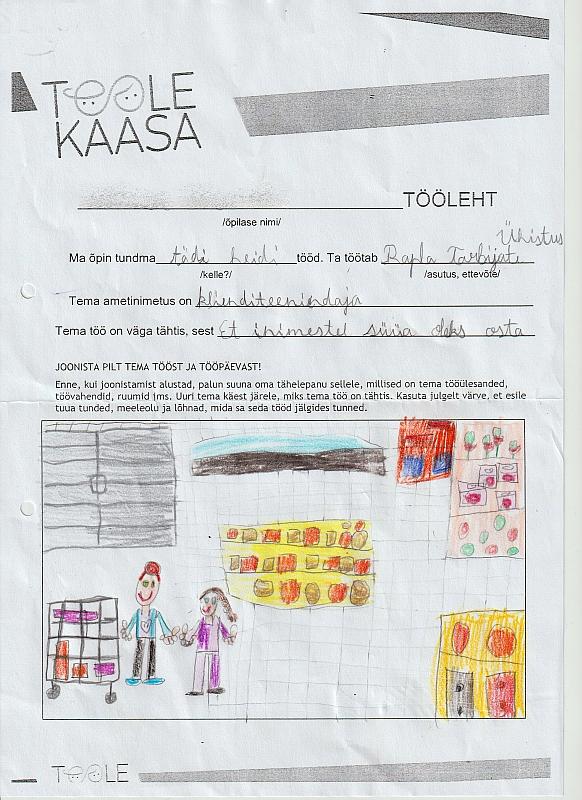 TÖÖLE
KAASA
TÖÖLEHT
/õpilase nimi/
Ühistus
Ma õpin tundma tädi Heidi tööd. Ta töötab Rapla Tarbijate
/kelle?/ /asutus, ettevõte/
Tema ametinimetus on klienditeenindaja
Tema töö on väga tähtis, sest Et inimestel süüa oleks osta
JOONISTA PILT TEMA TÖÖST JA TÖÖPÄEVAST!
Enne, kui joonistamist alustad, palun suuna oma tähelepanu sellele, millised on tema tööülesanded,
töövahendid, ruumid jms. Uuri tema käest järele, miks tema töö on tähtis. Kasuta julgelt värve, et esile
tuua tunded, meeleolu ja lõhnad, mida sa seda tööd jälgides tunned.
TÖÖLE